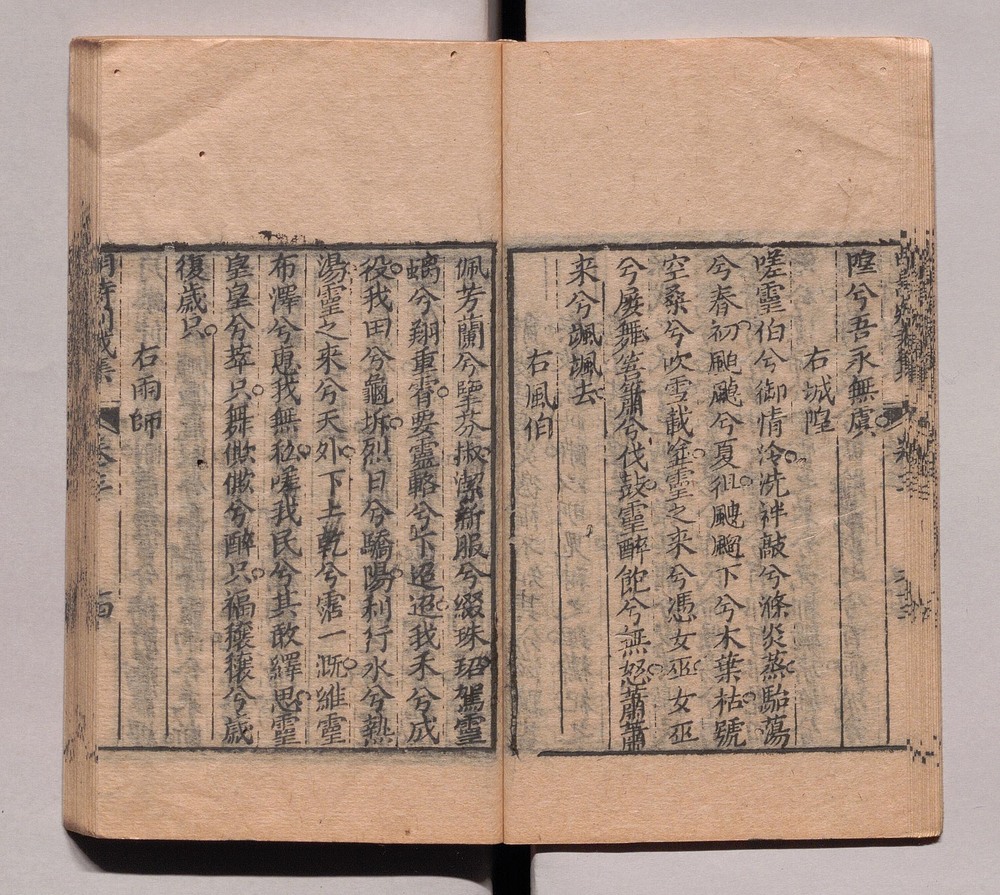 隍兮吾永無虞
右城隍
嗟靈伯兮御情泠洗袢敲兮滌炎蒸駘蕩
兮春初颸颸兮夏徂颸飀下兮木葉枯號
空桑兮吹雪載塗靈之来兮馮女巫女巫
兮屡舞笙簫兮伐鼓靈醉飽兮無怒蕭蕭
来兮颯颯去
右風伯
佩芳蘭兮壄芬椒潔新服兮綴珠玿駕靈
螭兮翔重霄要靈輅兮下迢迢我禾兮成
役我田兮龜坼烈日兮驕陽利行水兮熱
湯靈之来兮天外下上乾兮霑一溉維靈
布澤兮恵我無私嗟我民兮其敢繹思靈
皇皇兮萃只舞僛僛兮醉只福穰穰兮歲
復歲只
右雨師
卷三